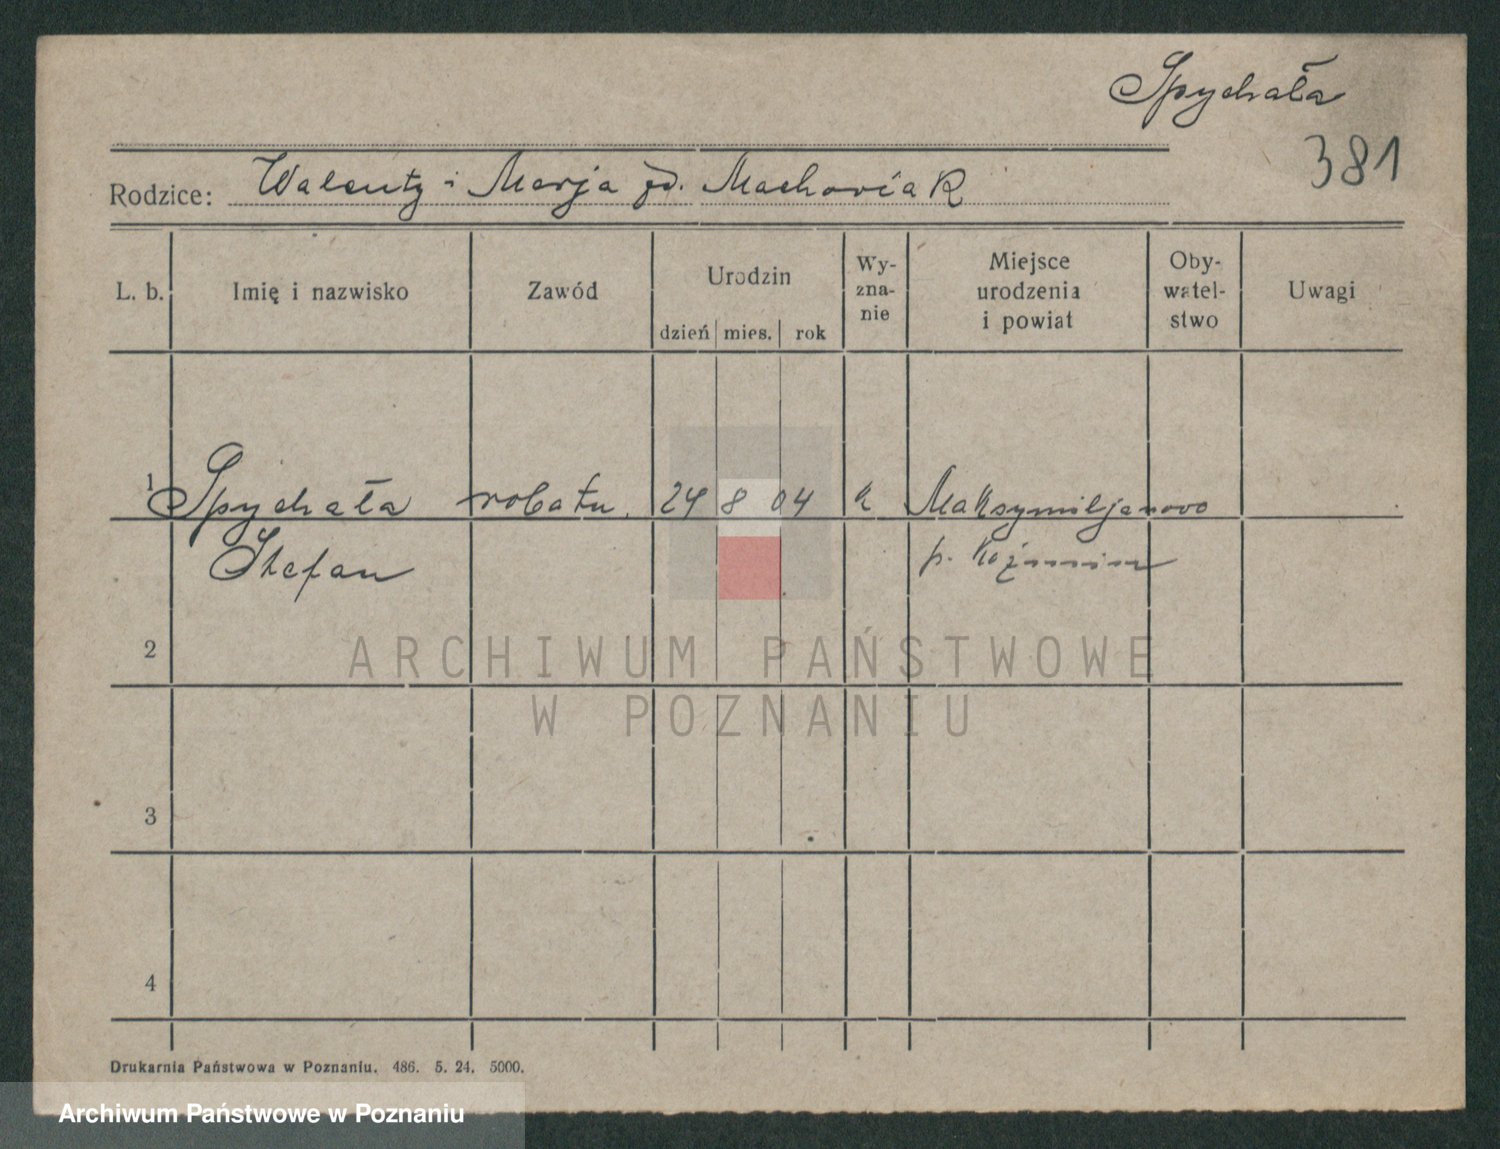 Spychała
381
Rodzice: Walenty i Marja zd. Machowiak
L. b. Imię i nazwisko Zawód Urodzin dzień mies. rok Wy-zna-nie Miejsce urodzenia i powiat Oby-watel-stwo Uwagi
1 Spychała robotn. 24 8 04 k Maksymiljanowo
Stefan p. Koźmin
2
ARCHIWUM PAŃSTWOWE
W POZNANIU
3
4
Drukarnia Państwowa w Poznaniu. 486. 5. 24. 5000.
Archiwum Państwowe w Poznaniu